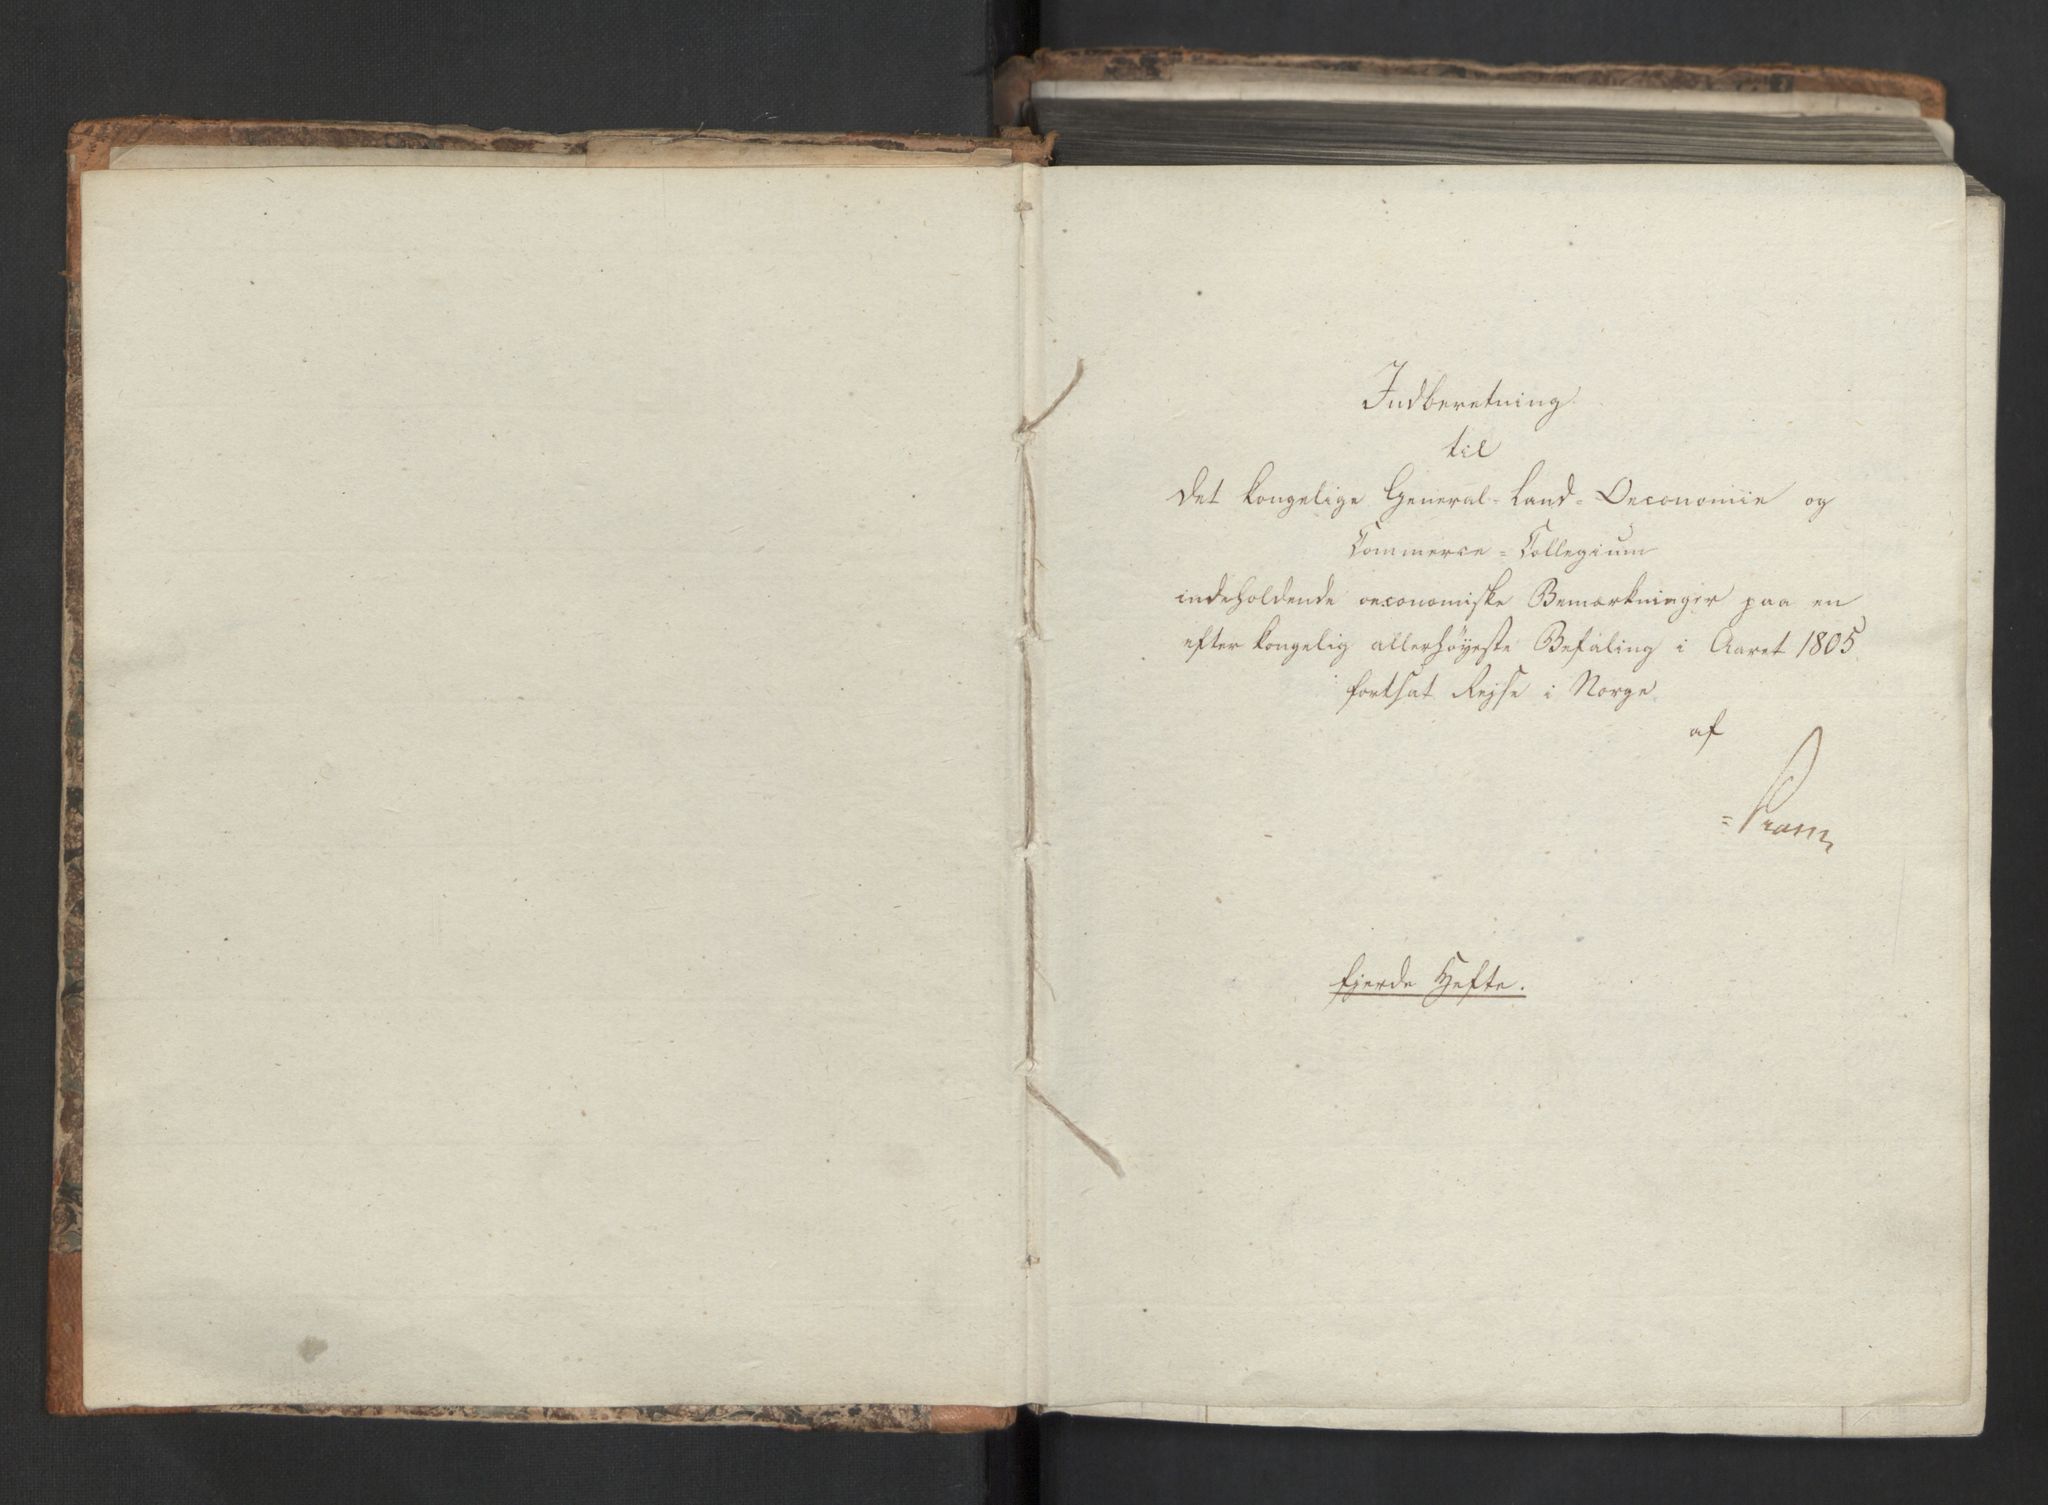 Indberetning
til
det kongelige General-Land-Oeconomie og
Commerce-Collegium
indeholdende oeconomiske Bemærkninger paa en
efter kongelig allerhøyeste Befaling i Aaret 1805
fortsat Rejse i Norge
af
Pram
fjerde Hefte.